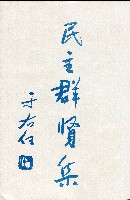 民主群賢集
于右任